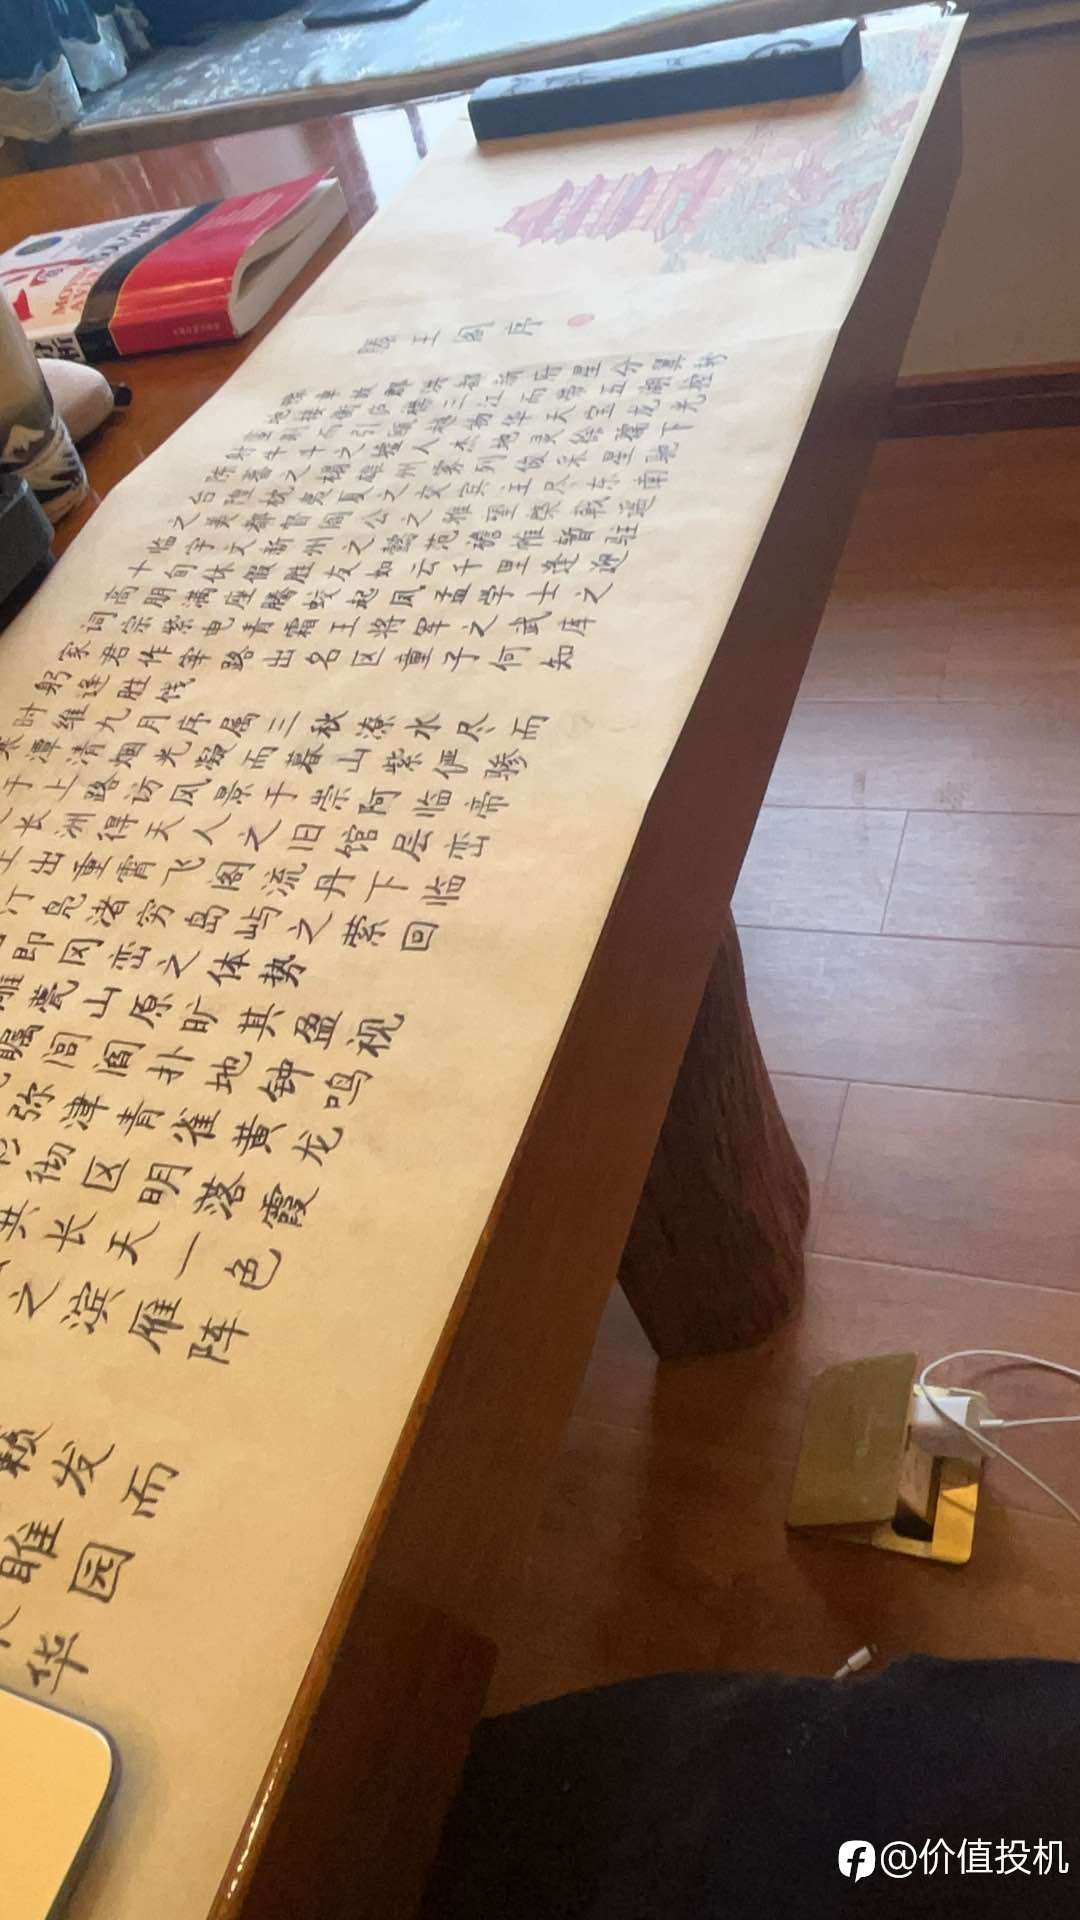 滕王阁序
豫章故郡洪都新府星分翼轸
地接衡庐襟三江而带五湖控
蛮荆而引瓯越物华天宝龙光
射牛斗之墟人杰地灵徐孺下
陈蕃之榻雄州雾列俊采星驰
台隍枕夷夏之交宾主尽东南
之美都督阎公之雅望棨戟遥
临宇文新州之懿范襜帷暂驻
十旬休假胜友如云千里逢迎
高朋满座腾蛟起凤孟学士之
词宗紫电青霜王将军之武库
家君作宰路出名区童子何知
躬逢胜饯
时维九月序属三秋潦水尽而
寒潭清烟光凝而暮山紫俨骖
于上路访风景于崇阿临帝
之长洲得天人之旧馆层峦
上出重霄飞阁流丹下临
汀凫渚穷岛屿之萦回
即冈峦之体势
雕甍山原旷其盈视
瞩闾阎扑地钟鸣
弥津青雀黄龙
彻区明落霞
共长天一色
之滨雁阵
籁发而
睢园
华
@价值投机